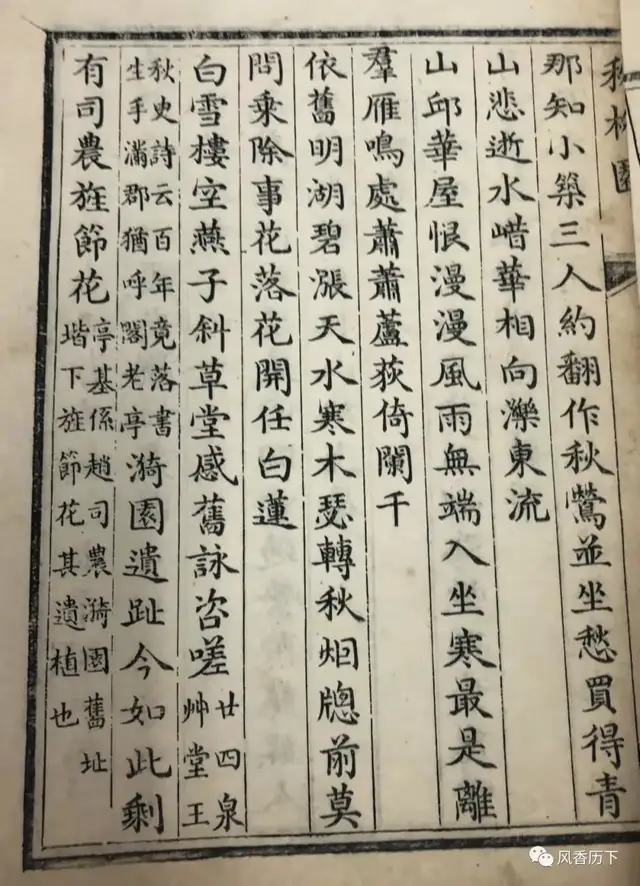 秋柳園
那知小築三人約翻作秋鶯並坐愁買得青
山悲逝水華相向濼東流
山邱華屋恨漫漫風雨無端入坐寒最是離
羣雁鳴處蕭蕭蘆荻倚闌干
依舊明湖碧漲天水寒木瑟轉秋烟牕前莫
問乘除事花落花開任白蓮
白雪樓空燕子斜草堂感舊詠咨嗟廿四泉艸堂王
秋史詩云百年竟落書生手滿郡猶呼閣老亭漪園遺趾今如此剩
有司農旌節花亭基係趙司農漪園舊址堦下旌節花其遺植也
风香历下